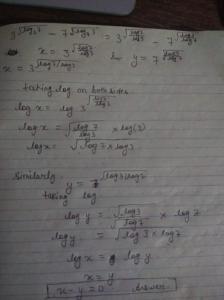 = 3^√(log7/log3) - 7^√(log3/log7)
x = 3^√(log7/log3) & y = 7^√(log3/log7)
x = 3^√(log7/log3)
taking log on both sides
log x = log 3^√(log7/log3)
log x = √(log 7/log 3) × log(3)
log x = √(log 7 × log 3)
Similarly y = 7^√(log3/log7)
taking log
log y = √(log3/log7) × log 7
log y = √(log 3 × log 7)
log x = log y
x = y
x - y = 0 Answer